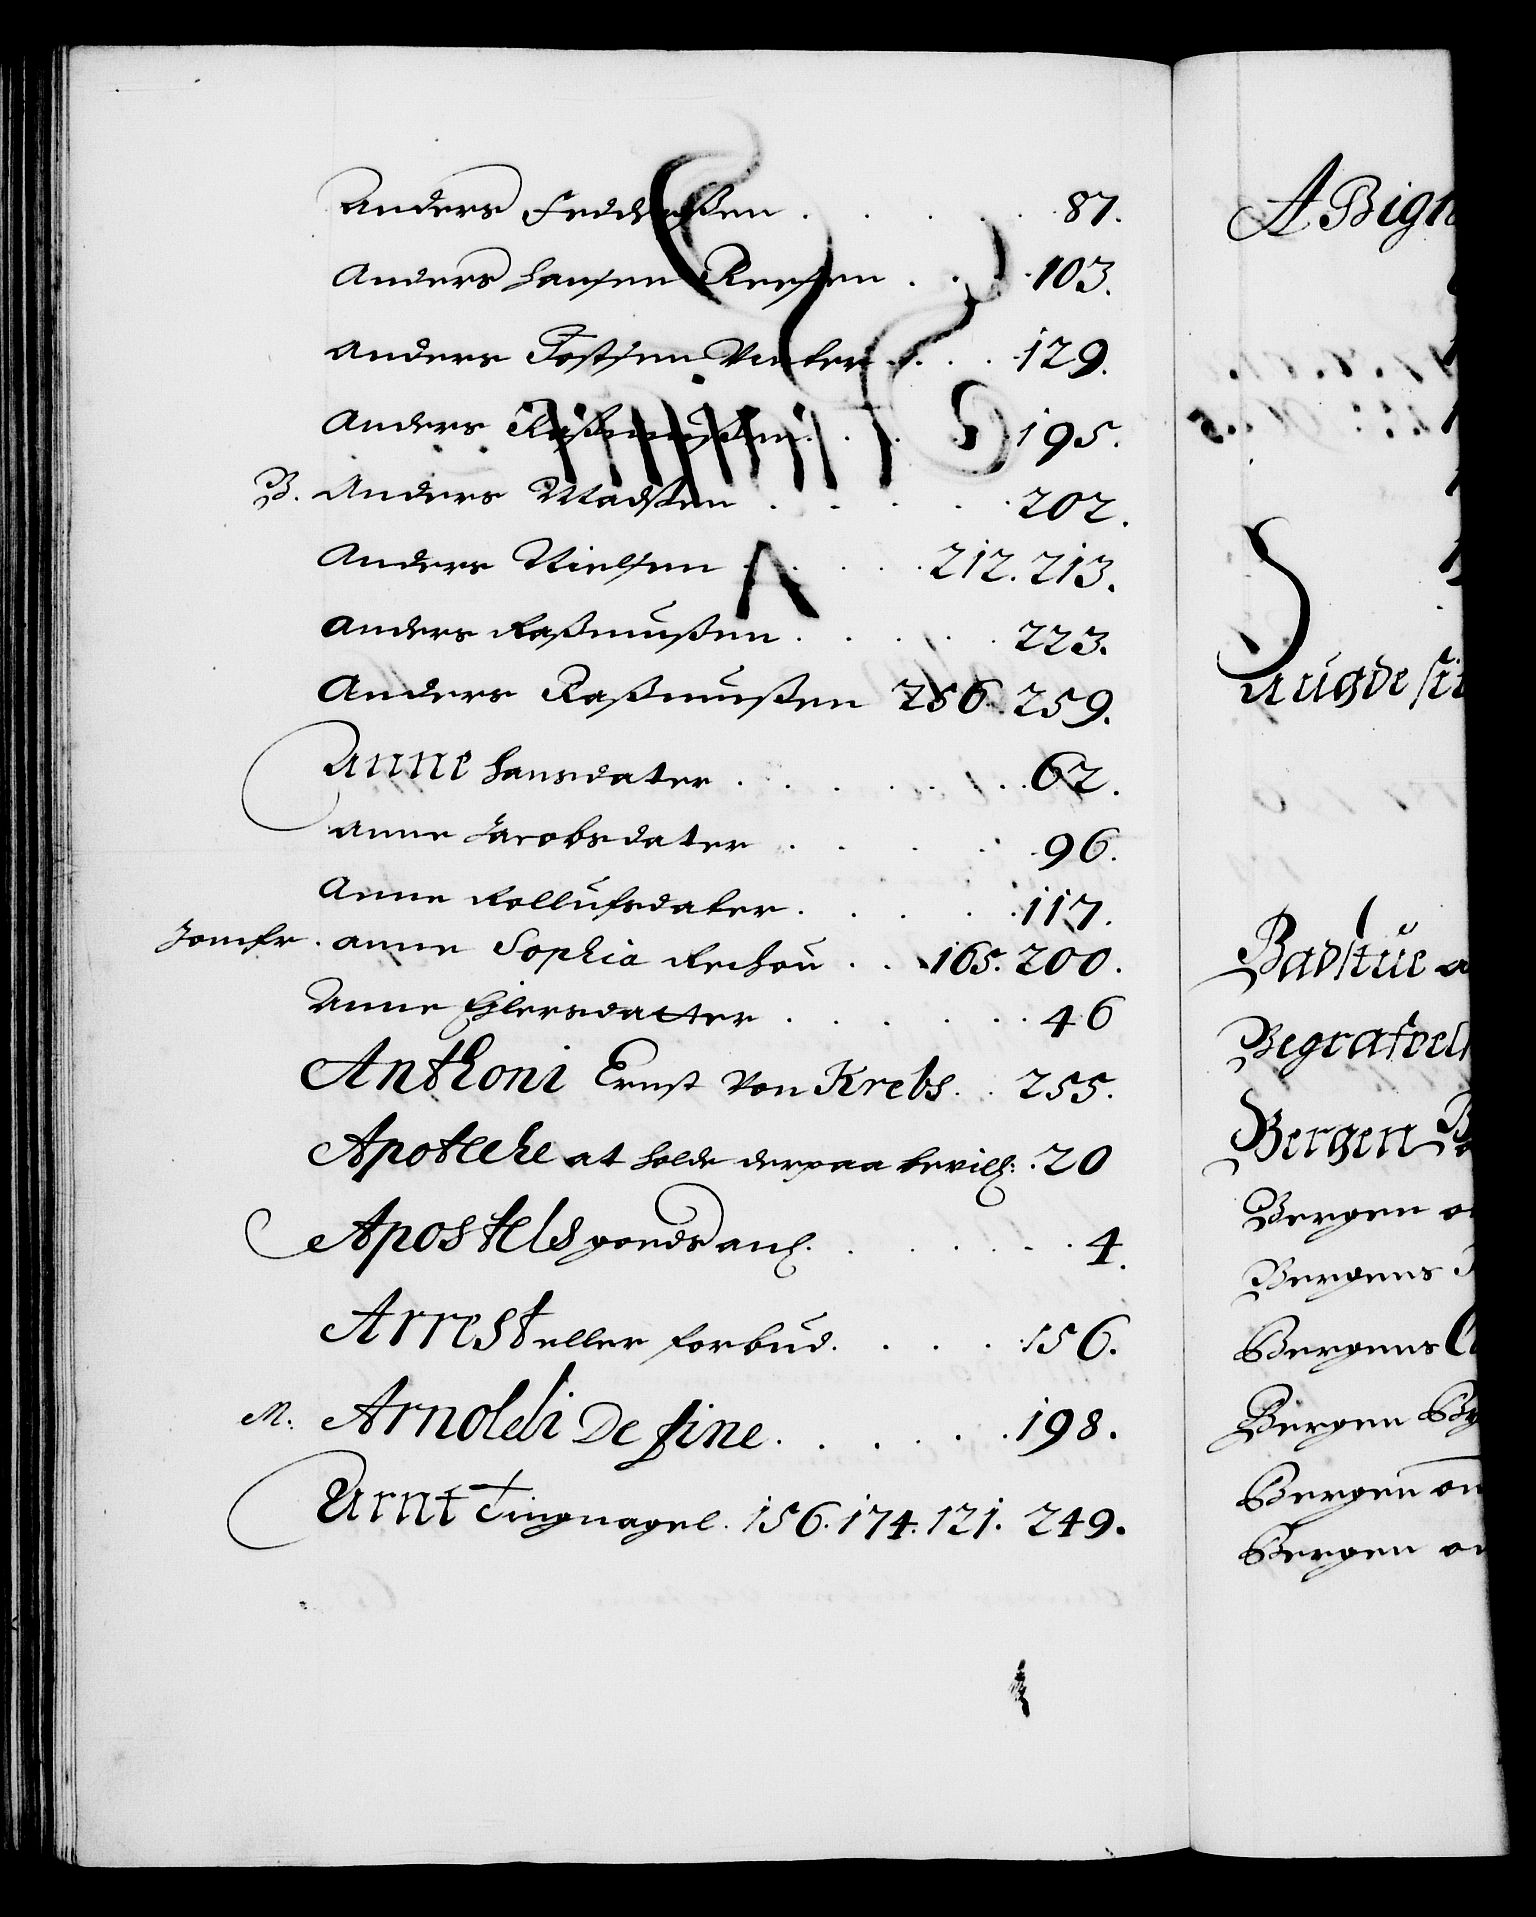 Anders Feddersßen . . . . . 87.
Anders Hansen Reesen . . . 103.
Anders Tostsen Venker . . . 129.
Anders Raßmusßen . . . 195.
B. Anders Madsßen . . . . . 202.
Anders Nielsen . . . . 212. 213.
Anders Raßmusßen . . . . . 223.
Anders Raßmusßen 256. 259.
Anne Hansdater . . . . . . 62.
Anne Jacobsdater . . . . . 96.
Anne Rollufsdater . . . . . 117.
Jomfr. Anne Sophia Reehou . . . 165. 200.
Anne Ehlersdatter . . . . . . 46
Anthoni Ernst von Krebs . . 255.
Apoteche at holde derpaa bevill: . 20
Apostels goeds anl. . . . . . . 4.
Arrest eller forbud . . . . . 156.
M. Arnoldi De fine . . . . . . 198.
Arnt Tingnagel . 156. 174. 121. 249.
A Bign
Augde
Badstue
Bergen
Bergen
Bergens
Bergens
Bergen
Bergen
Bergen